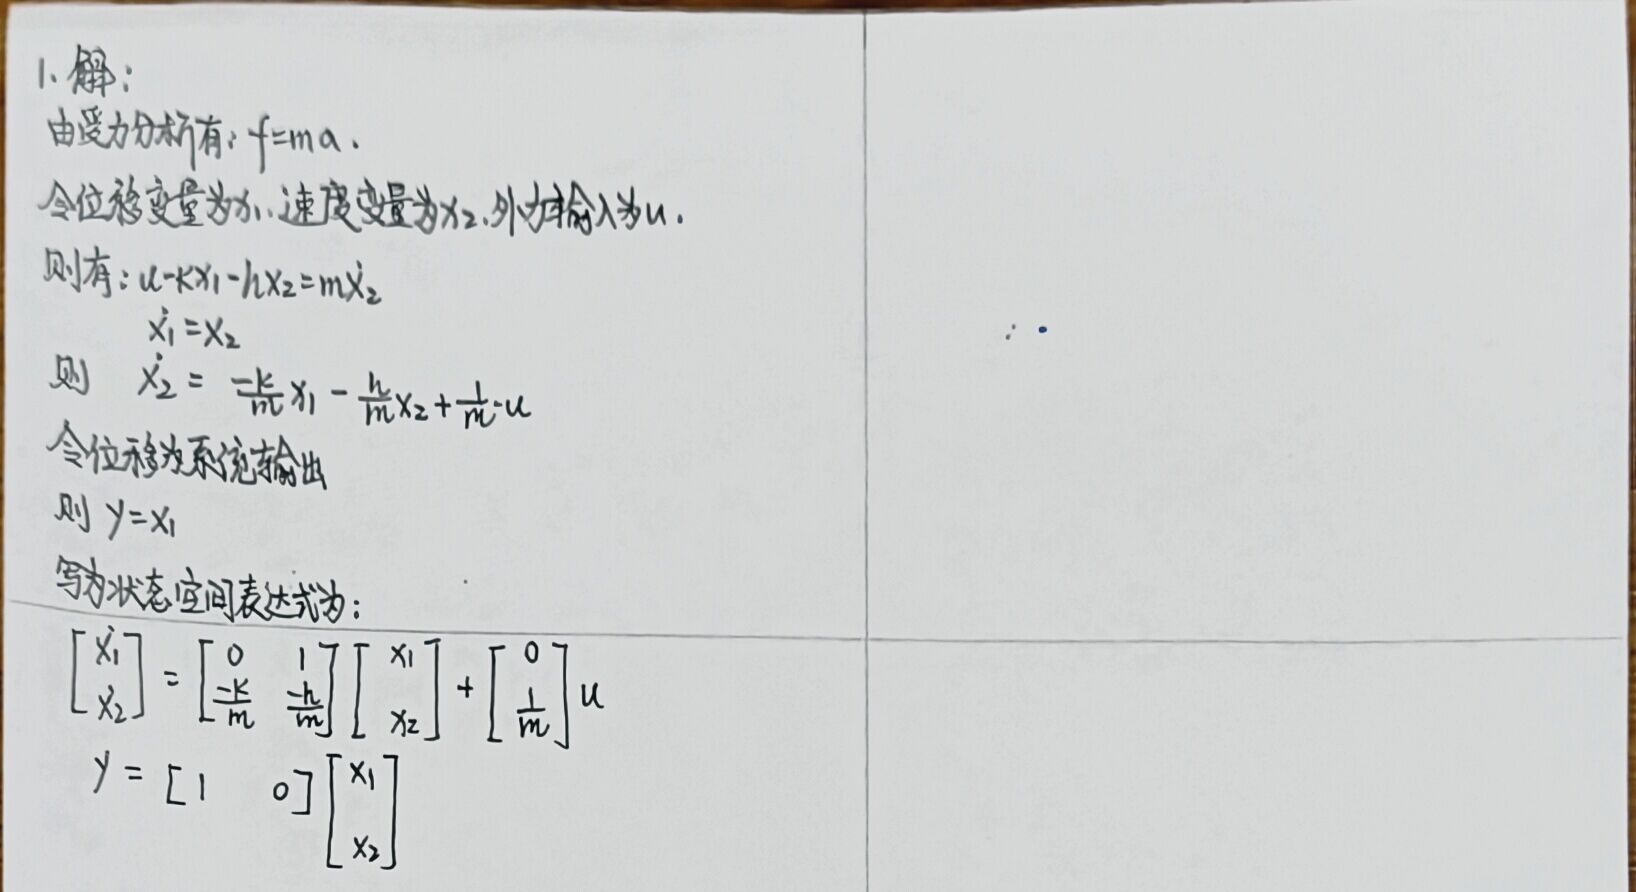 1、解：
由受力分析有：f=ma.
令位移变量为x₁、速度变量为x₂、外力输入为u.
则有：u-kx₁-hx₂=mẋ₂
ẋ₁=x₂
则 ẋ₂ = \frac{-k}{m}x₁ - \frac{h}{m}x₂ + \frac{1}{m}·u
令位移为系统输出
则 y=x₁
写为状态空间表达式为：
\begin{bmatrix} ẋ₁ \\ ẋ₂ \end{bmatrix} = \begin{bmatrix} 0 & 1 \\ \frac{-k}{m} & \frac{-h}{m} \end{bmatrix} \begin{bmatrix} x₁ \\ x₂ \end{bmatrix} + \begin{bmatrix} 0 \\ \frac{1}{m} \end{bmatrix} u
y = [1 0] \begin{bmatrix} x₁ \\ x₂ \end{bmatrix}